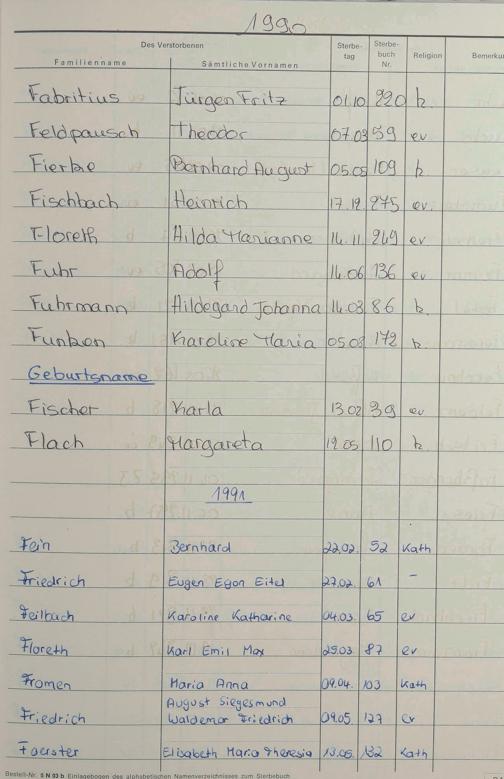 1990
Des Verstorbenen Sterbe- Sterbe- Religion
Familienname Sämtliche Vornamen tag buch Nr.
Fabritius Jürgen Fritz 01.10. 220 k
Feldpausch Theodor 07.03 59 ev
Fierbe Bernhard August 05.05 109 k
Fischbach Heinrich 17.12. 275 ev.
Floreth Hilda Marianne 14.11. 249 ev
Fuhr Adolf 14.06 136 ev
Fuhrmann Hildegard Johanna 14.03 86 k.
Funken Karoline Maria 05.08 172 k.
Geburtsname
Fischer Karla 13.02 39 ev
Flach Margareta 12.05 110 k
1991
Fein Bernhard 22.02. 52 Kath
Friedrich Eugen Egon Eitel 27.02. 61 -
Feilbach Karoline Katharine 04.03. 65 ev
Floreth Karl Emil Max 25.03 87 ev
Fromen Maria Anna 09.04. 103 Kath
August Siegesmund
Friedrich Waldemar Friedrich 09.05. 127 ev
Foerster Elisabeth Maria Theresia 13.05. 132 Kath
Bestell-Nr. S N 03 b Einlagebogen des alphabetischen Namenverzeichnisses zum Sterbebuch